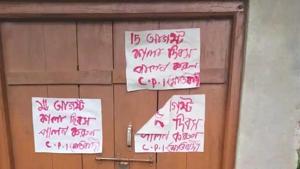 15 আগস্ট
কালা দিবস
পালন করুন
C.P.I (মাওবাদী)
১৫ আগস্ট
কালা দিবস
পালন করুন
C.P.I (মাওবাদী)
গস্ট
দিবস
পালন করুন
C.P.I (মাওবাদী)